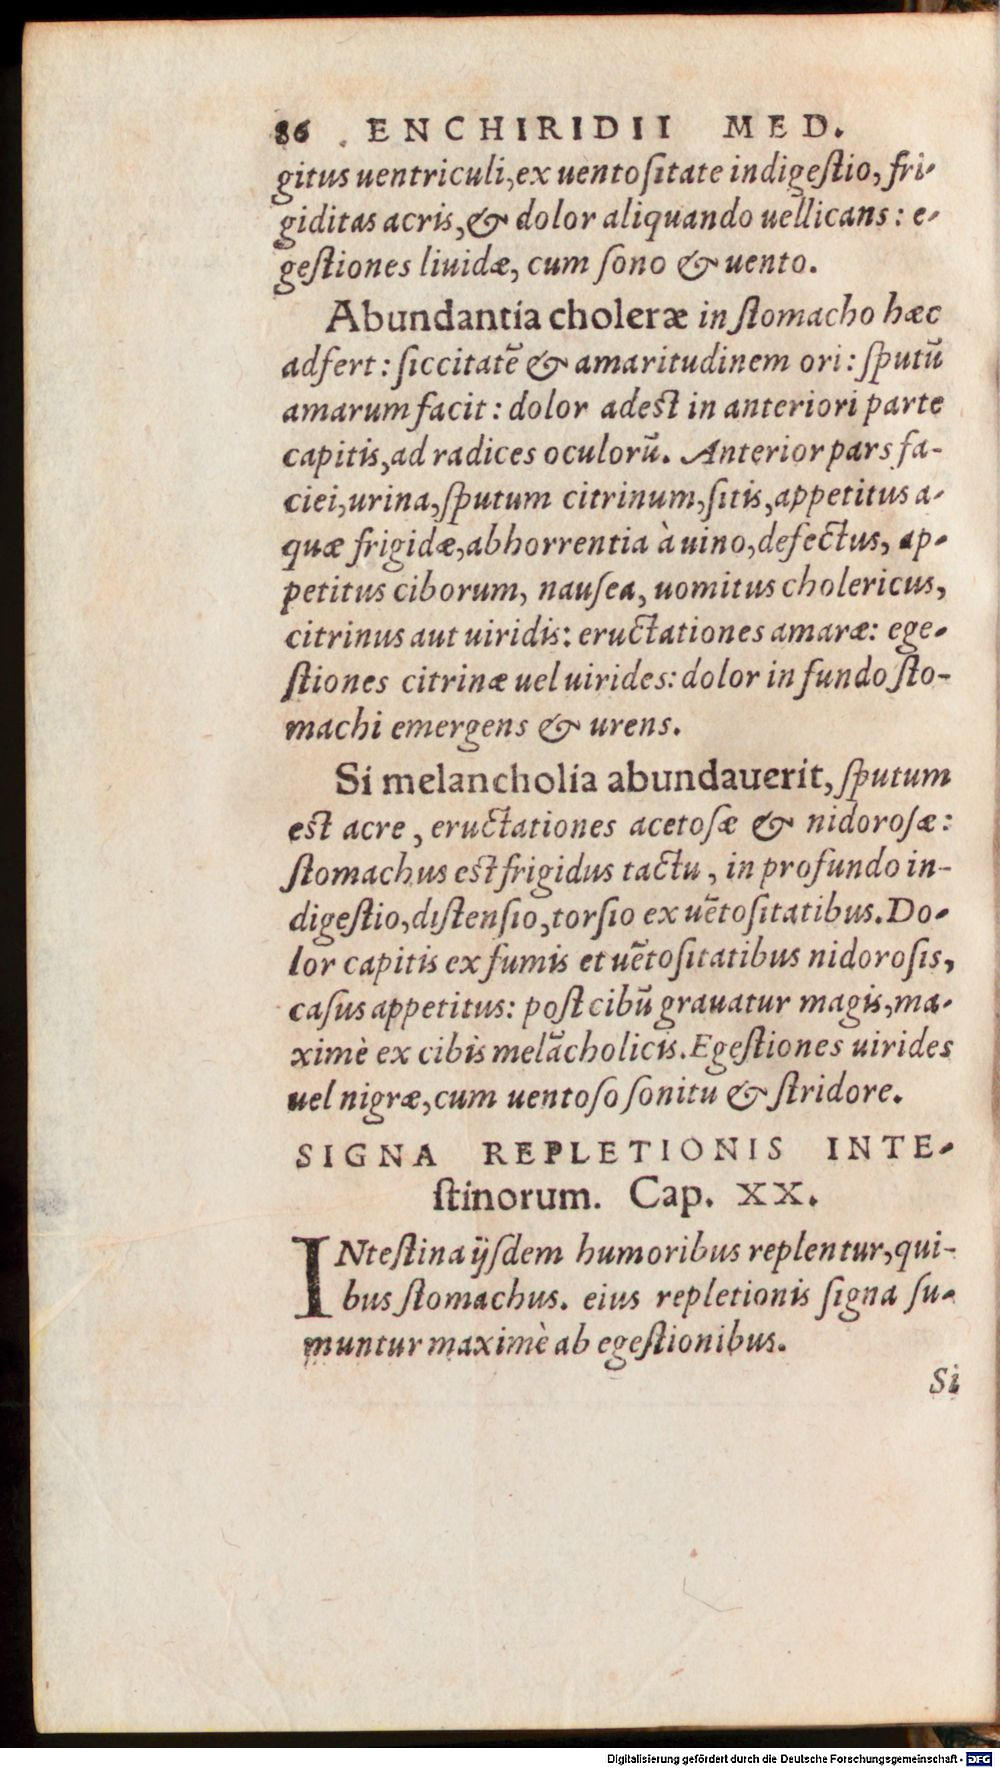 86 . ENCHIRIDII MED.
gitus uentriculi, ex uentoſitate indigeſtio, fri-
giditas acris, & dolor aliquando uellicans: e-
geſtiones liuidæ, cum ſono & uento.
Abundantia choleræ in ſtomacho hæc
adfert: ſiccitatē & amaritudinem ori: ſputū
amarum facit: dolor adest in anteriori parte
capitis, ad radices oculorū. Anterior pars fa-
ciei, urina, ſputum citrinum, ſitis, appetitus a-
quæ frigidæ, abhorrentia à uino, defectus, ap-
petitus ciborum, nauſea, uomitus cholericus,
citrinus aut uiridis: eructationes amaræ: ege-
ſtiones citrinæ uel uirides: dolor in fundo ſto-
machi emergens & urens.
Si melancholia abundauerit, ſputum
est acre, eructationes acetoſæ & nidoroſæ:
ſtomachus est frigidus tactu, in profundo in-
digeſtio, diſtenſio, torſio ex uētoſitatibus. Do-
lor capitis ex fumis et uētoſitatibus nidoroſis,
caſus appetitus: poſt cibū grauatur magis, ma-
ximè ex cibis melācholicis. Egeſtiones uirides
uel nigræ, cum uentoſo ſonitu & ſtridore.
SIGNA REPLETIONIS INTE-
ſtinorum. Cap. XX.
INteſtina ijſdem humoribus replentur, qui-
bus ſtomachus. eius repletionis ſigna ſu-
muntur maximè ab egeſtionibus.
Si
Digitalisierung gefördert durch die Deutsche Forschungsgemeinschaft - DFG